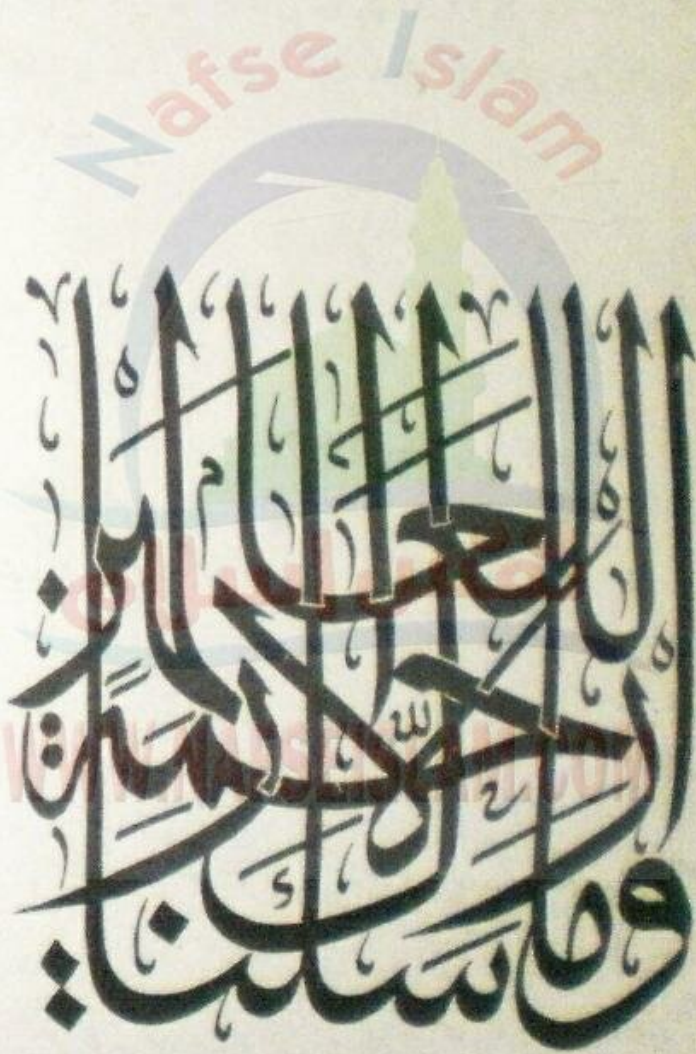 Nafse Islam
وَمَا أَرْسَلْنَاكَ إِلَّا رَحْمَةً لِلْعَالَمِينَ
WWW.NAFSEISLAM.COM